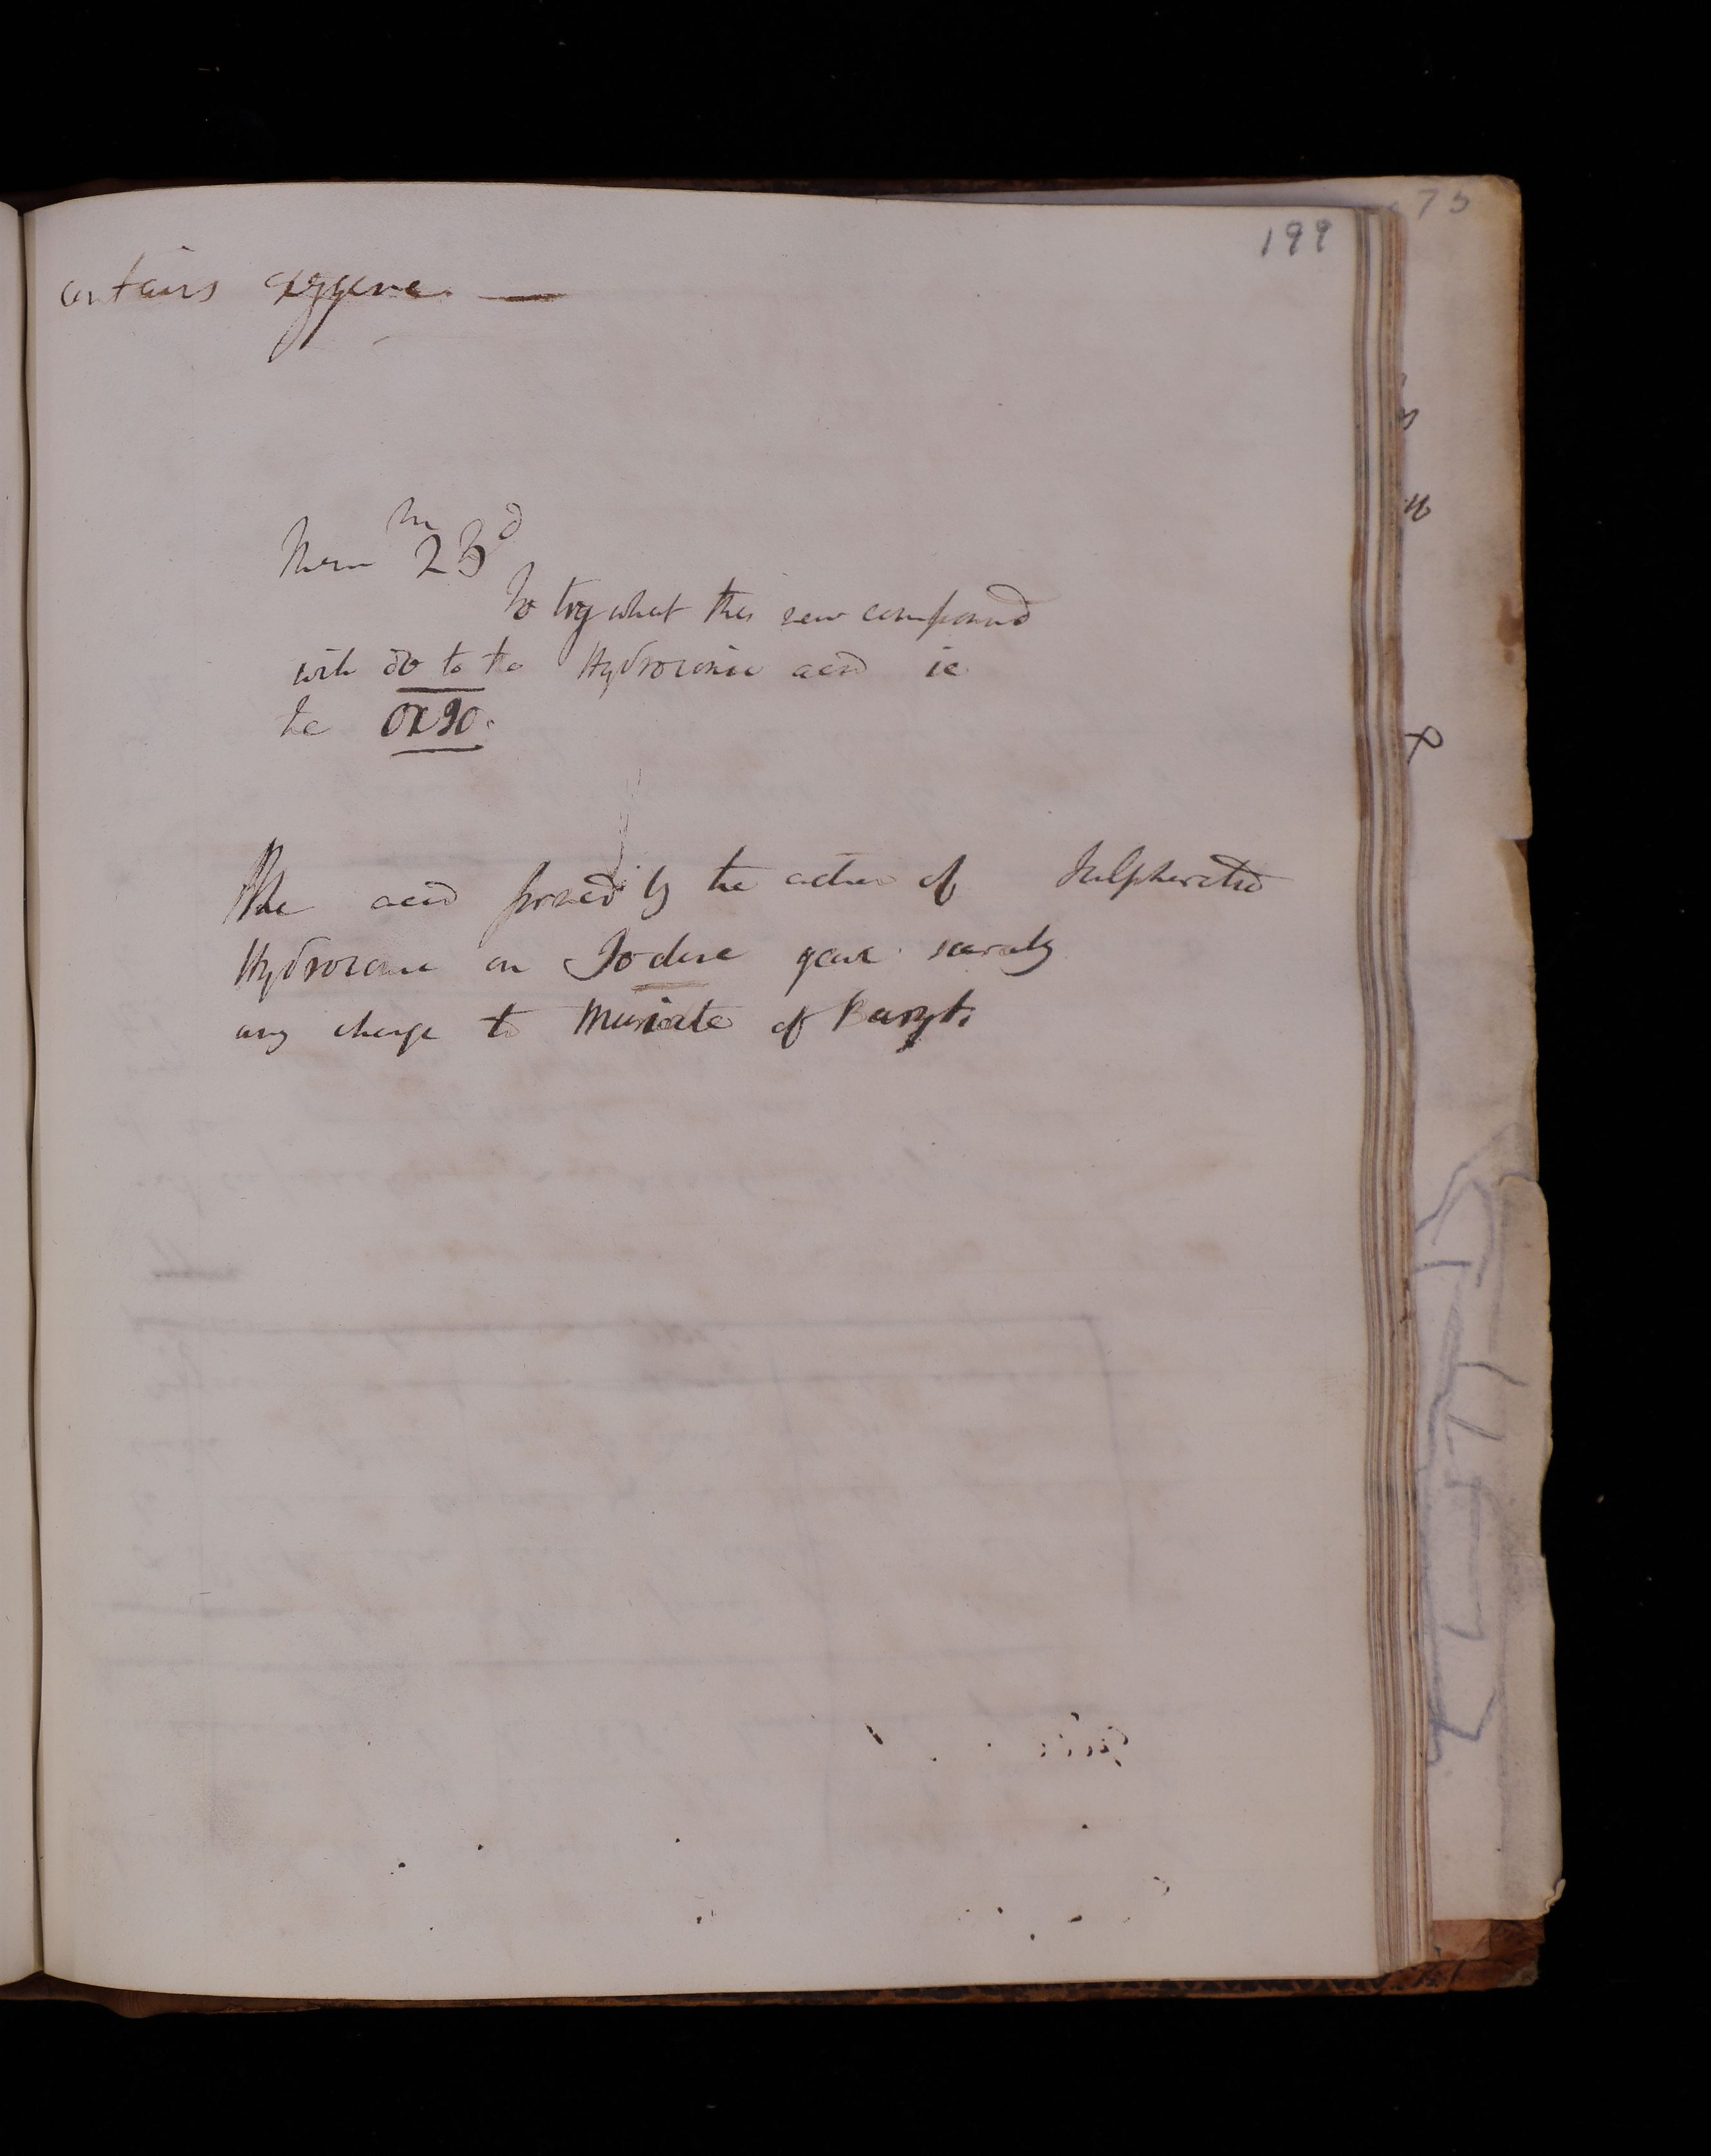 199
contains oxygene. —
Mem 23d
To try what this new compound
will do to the Hydroionic acid ie
the Oxy.
The acid formed by the action of Sulphuretted
Hydrogene on Iodine gave scarcely
any change to Muriate of Baryt.
75